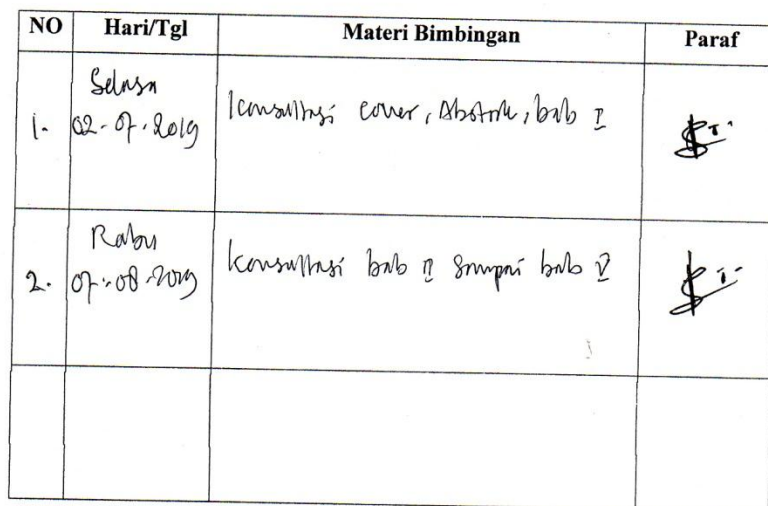 NO Hari/Tgl Materi Bimbingan Paraf
Selasa
1. 02-07-2019 Konsultasi cover, Abstrak, bab I
Rabu
2. 07-08-2019 Konsultasi bab II sampai bab V